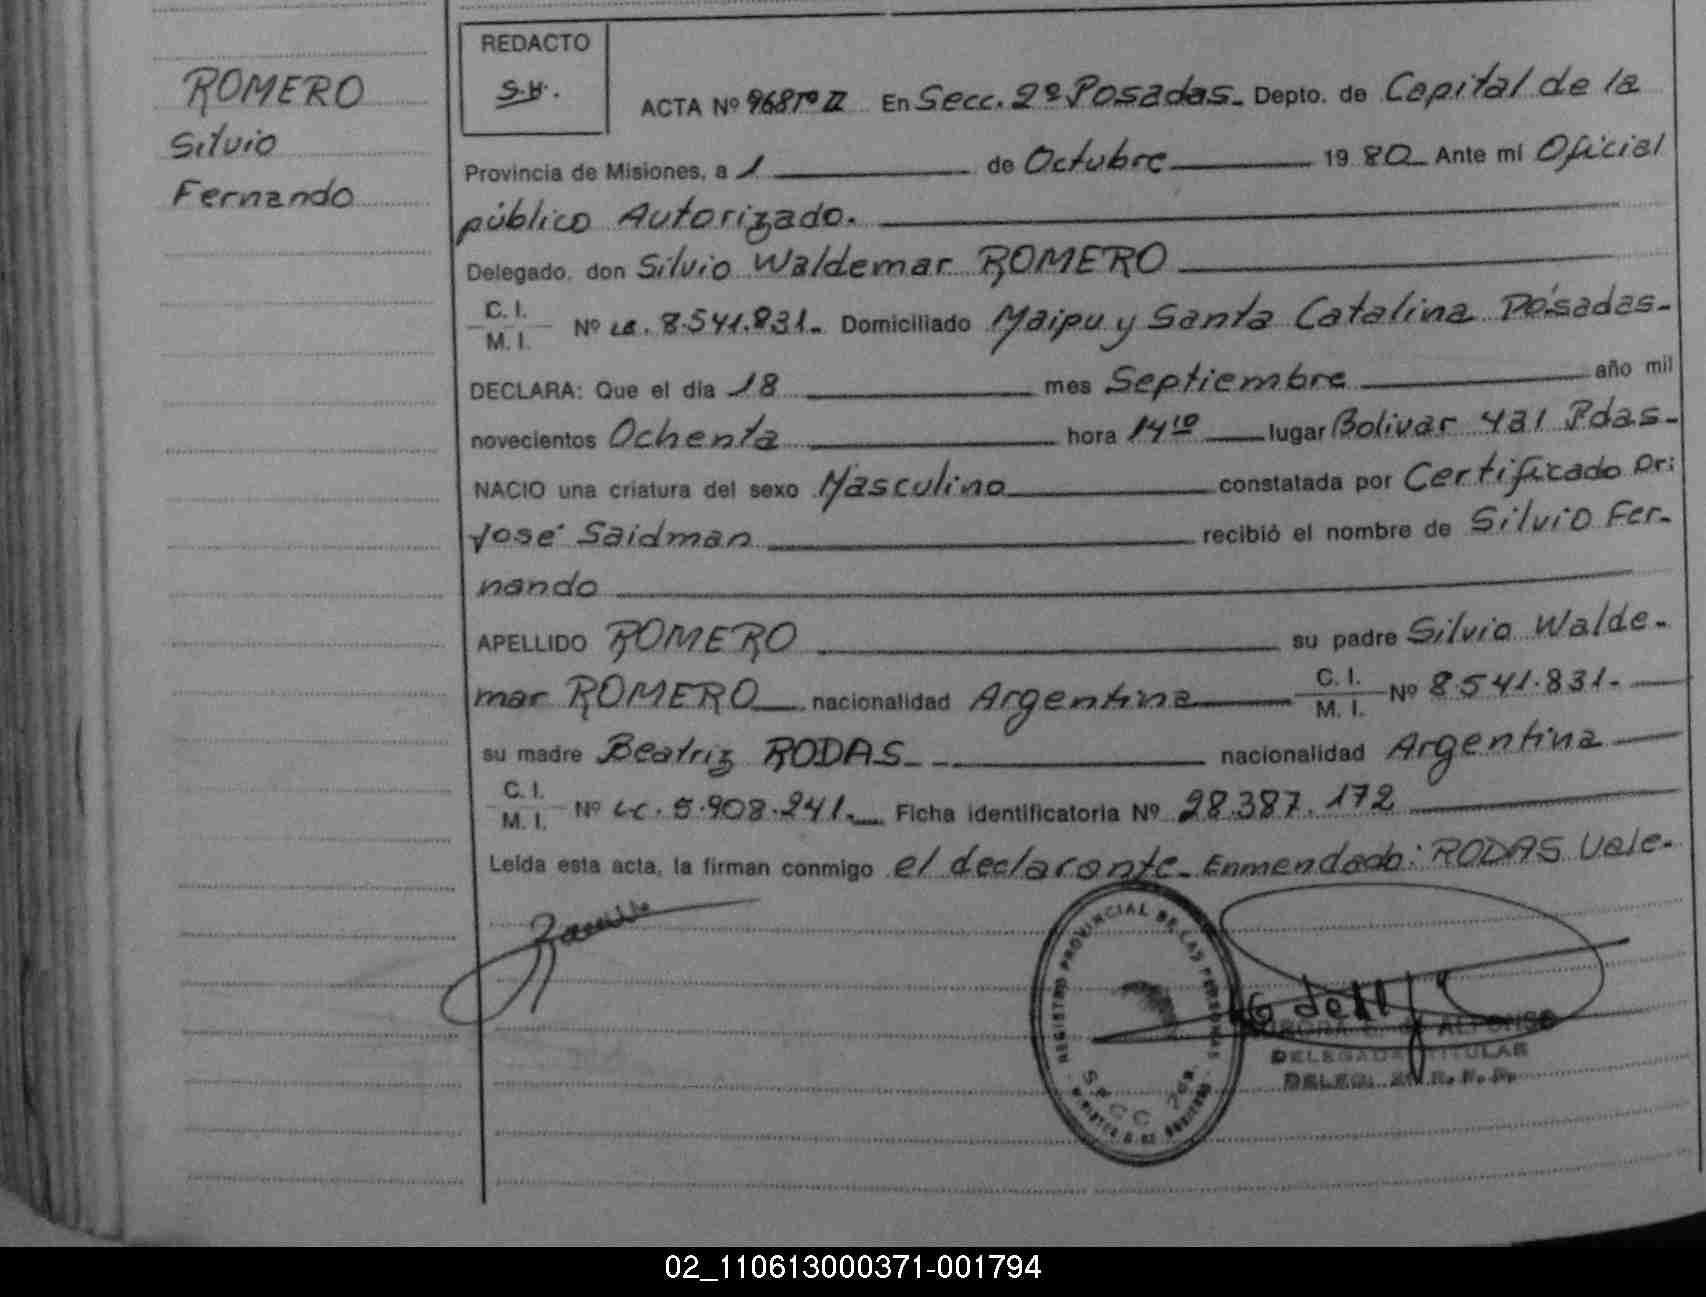 ROMERO
Silvio
Fernando
REDACTO
S.H.
ACTA Nº 968 Tº II En Secc. 2º Posadas. Depto. de Capital de la
Provincia de Misiones, a 1 de Octubre 19 80 Ante mi Oficial
público Autorizado.
Delegado, don Silvio Waldemar ROMERO
C. I.
M. I.
Nº LE. 8.541.831. Domiciliado Maipu y Santa Catalina Posadas-
DECLARA: Que el día 18 mes Septiembre año mil
novecientos Ochenta hora 14 10 lugar Bolivar 431 Pdas-
NACIO una criatura del sexo Masculino constatada por Certificado Dr:
José Saidman recibió el nombre de Silvio Fer-
nando
APELLIDO ROMERO su padre Silvio Walde-
mar ROMERO nacionalidad Argentina C. I.
M. I. Nº 8.541.831.
su madre Beatriz RODAS nacionalidad Argentina
C. I.
M. I.
Nº LC. 5.908.241. Ficha identificatoria Nº 28.387.172
Leída esta acta, la firman conmigo el declarante. Enmendado: RODAS Vale.
REGISTRO PROVINCIAL DE LAS PERSONAS
SECC 2da.
DELEGADA TITULAR
DELEG.
02_110613000371-001794